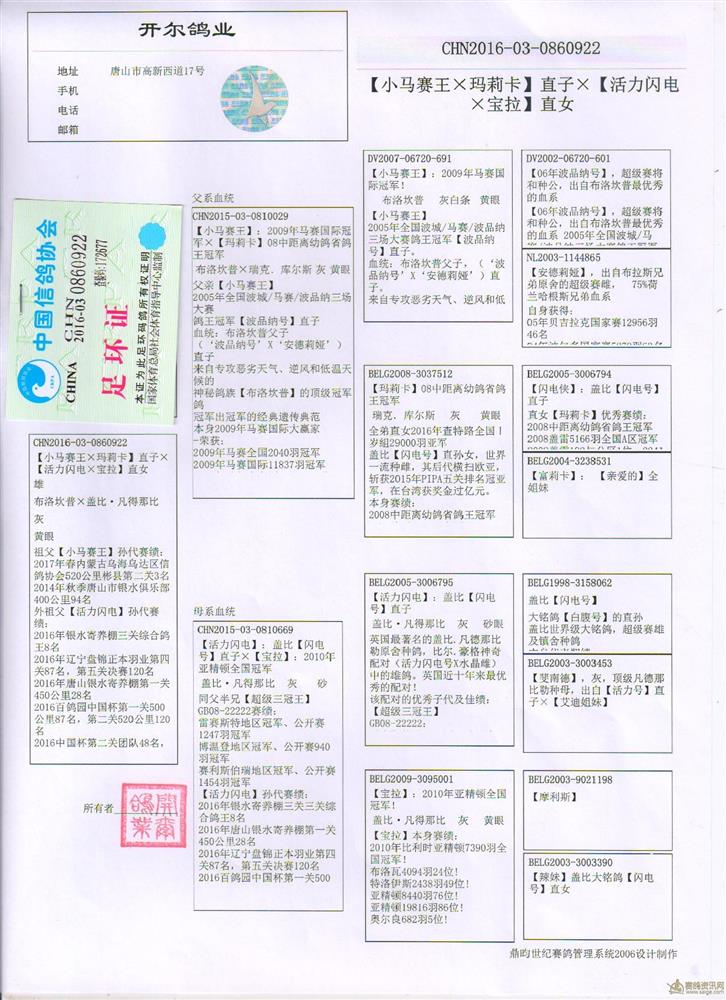 开尔鸽业
地址 唐山市高新西道17号
手机
电话
邮箱
CHN2016-03-0860922
【小马赛王×玛莉卡】直子×【活力闪电
×宝拉】直女
中国信鸽协会
CHINA
CHN
2016-03 0860922
足环证
本证为此足环码鸽所有权证明
国家体育总局社会体育指导中心监制
CHN2016-03-0860922
【小马赛王×玛莉卡】直子×
【活力闪电×宝拉】直女
雄
布洛坎普×盖比·凡得那比
灰
黄眼
祖父【小马赛王】孙代赛绩:
2017年春内蒙古乌海乌达区信
鸽协会520公里彬县第二关3名
2014年秋季唐山市银水俱乐部
400公里94名
外祖父【活力闪电】孙代赛
绩:
2016年银水寄养棚三关综合鸽
王8名
2016年辽宁盘锦正本羽业第四
关87名，第五关决赛120名
2016年唐山银水寄养棚第一关
450公里28名
2016百鸽园中国杯第一关500
公里87名，第二关520公里120
名
2016中国杯第二关团队48名,
所有者
開爾鴿業
父系血统
CHN2015-03-0810029
【小马赛王】: 2009年马赛国际冠
军×【玛莉卡】08中距离幼鸽省鸽
王冠军
布洛坎普×瑞克．库尔斯 灰 黄眼
父亲【小马赛王】
2005年全国波城/马赛/波品纳三场
大赛
鸽王冠军【波品纳号】直子
血统: 布洛坎普父子
（‘波品纳号’X‘安德莉娅’）
直子
来自专攻恶劣天气、逆风和低温天
候的
神秘鸽族【布洛坎普】的顶级冠军
鸽
冠军出冠军的经典遗传典范
本身2009年马赛国际大赢家
-荣获:
2009年马赛全国2040羽冠军
2009年马赛国际11837羽冠军
母系血统
CHN2015-03-0810669
【活力闪电】: 盖比【闪电
号】直子×【宝拉】: 2010年
亚精顿全国冠军
盖比·凡得那比 灰 砂
同父半兄【超级三冠王】
GB08-22222赛绩:
雷赛斯特地区冠军、公开赛
1247羽冠军
博温登地区冠军、公开赛940
羽冠军
赛利斯伯瑞地区冠军、公开赛
1454羽冠军
【活力闪电】孙代赛绩:
2016年银水寄养棚三关三关综
合鸽王8名
2016年唐山银水寄养棚第一关
450公里28名
2016年辽宁盘锦正本羽业第四
关87名，第五关决赛120名
2016百鸽园中国杯第一关500
DV2007-06720-691
【小马赛王】: 2009年马赛国
际冠军!
布洛坎普 灰白条 黄眼
【小马赛王】
2005年全国波城/马赛/波品纳
三场大赛鸽王冠军【波品纳
号】直子。
血统: 布洛坎普父子，（‘波
品纳号’X‘安德莉娅’）直
子。
来自专攻恶劣天气、逆风和低
BELG2008-3037512
【玛莉卡】08中距离幼鸽省鸽
王冠军
瑞克．库尔斯 灰 黄眼
全弟直女2016年查特路全国Ⅰ
岁组29000羽亚军
盖比【闪电号】直孙女，世界
一流种雌，其后代横扫欧亚，
斩获2015年PIPA五关排名冠亚
军，在台湾获奖金过亿元。
本身赛绩:
2008中距离幼鸽省鸽王冠军
BELG2005-3006795
【活力闪电】: 盖比【闪电
号】直子
盖比·凡得那比 灰 砂眼
英国最著名的盖比.凡德那比
勒原舍种鸽，比尔.豪格神奇
配对（活力闪电号X水晶雌）
中的雄鸽，英国近十年来最优
秀的配对!
该配对的优秀子代及佳绩:
【超级三冠王】
GB08-22222:
BELG2009-3095001
【宝拉】: 2010年亚精顿全国
冠军!
盖比·凡得那比 灰 黄眼
【宝拉】本身赛绩:
2010年比利时亚精顿7390羽全
国冠军!
布洛瓦4094羽24位!
特洛伊斯2438羽49位!
亚精顿8440羽76位!
亚精顿19816羽86位!
奥尔良682羽5位!
DV2002-06720-601
【06年波品纳号】，超级赛将
和种公，出自布洛坎普最优秀
的血系
【06年波品纳号】，超级赛将
和种公，出自布洛坎普最优秀
的血系 2005年全国波城/马
NL2003-1144865
【安德莉娅】，出自布拉斯兄
弟原舍的超级赛雌， 75%荷
兰哈根斯兄弟血系
自身获得:
05年贝吉拉克国家赛12956羽
46名
BELG2005-3006794
【闪电侠】: 盖比【闪电号】
直子
直女【玛莉卡】优秀赛绩:
2008中距离幼鸽省鸽王冠军
2008盖雷5166羽全国A区冠军
BELG2004-3238531
【富莉卡】: 【亲爱的】全
姐妹
BELG1998-3158062
盖比【闪电号】
大铭鸽【白腹号】的直孙
盖比世界级大铭鸽，超级赛雄
及镇舍种鸽
BELG2003-3003453
【斐南德】，灰，顶级凡德那
比勒种母，出自【活力号】直
子×【艾迪姐妹】
BELG2003-9021198
【摩利斯】
BELG2003-3003390
【辣妹】盖比大铭鸽【闪电
号】直女
鼎昀世纪赛鸽管理系统2006设计制作
赛鸽资讯网
www.saige.com